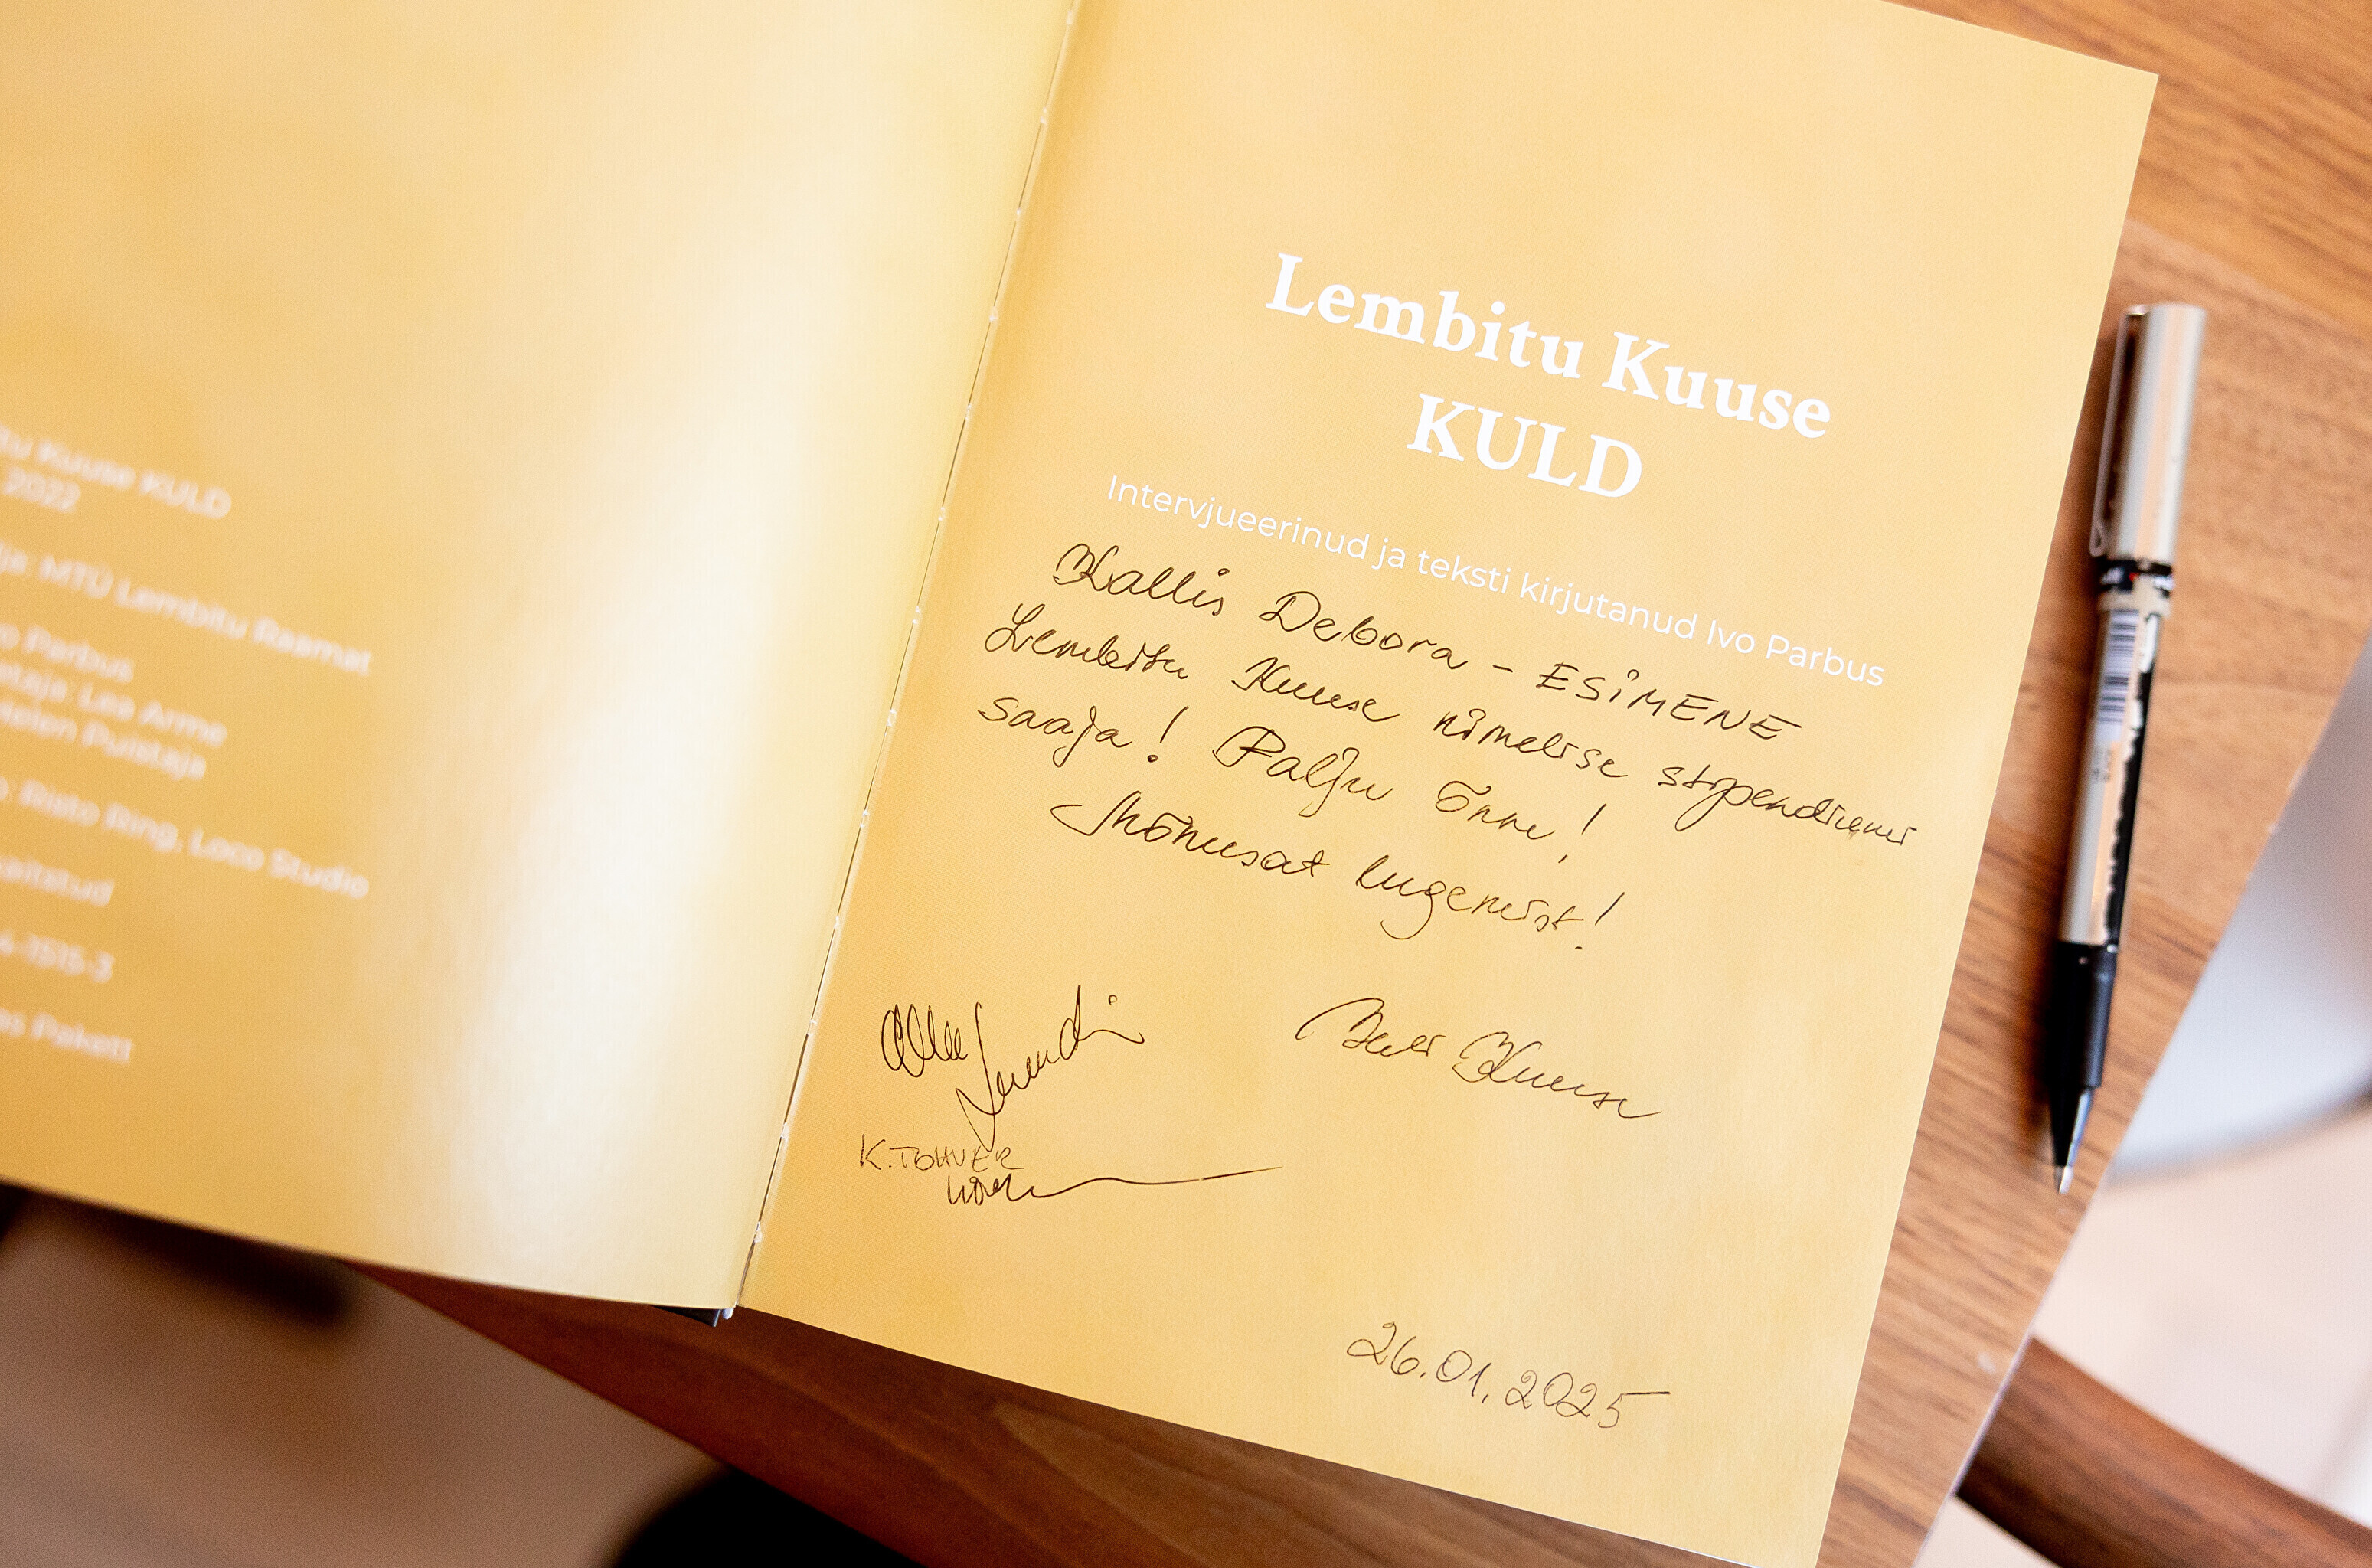 tu Kuuse KULD
2022
ja: MTÜ Lembitu Raamat
o Parbus
staja: Lea Arme
Helen Puistaja
o: Risto Ring, Loco Studio
kaitstud
4-1515-3
as Pakett
Lembitu Kuuse
KULD
Intervjueerinud ja teksti kirjutanud Ivo Parbus
Kallis Debora – ESiMENE
Lembitu Kuuse nimelise stipendiumi
saaja! Palju õnne!
Mõnusat lugemist!
Kuuse
K. TOHVER
26.01.2025